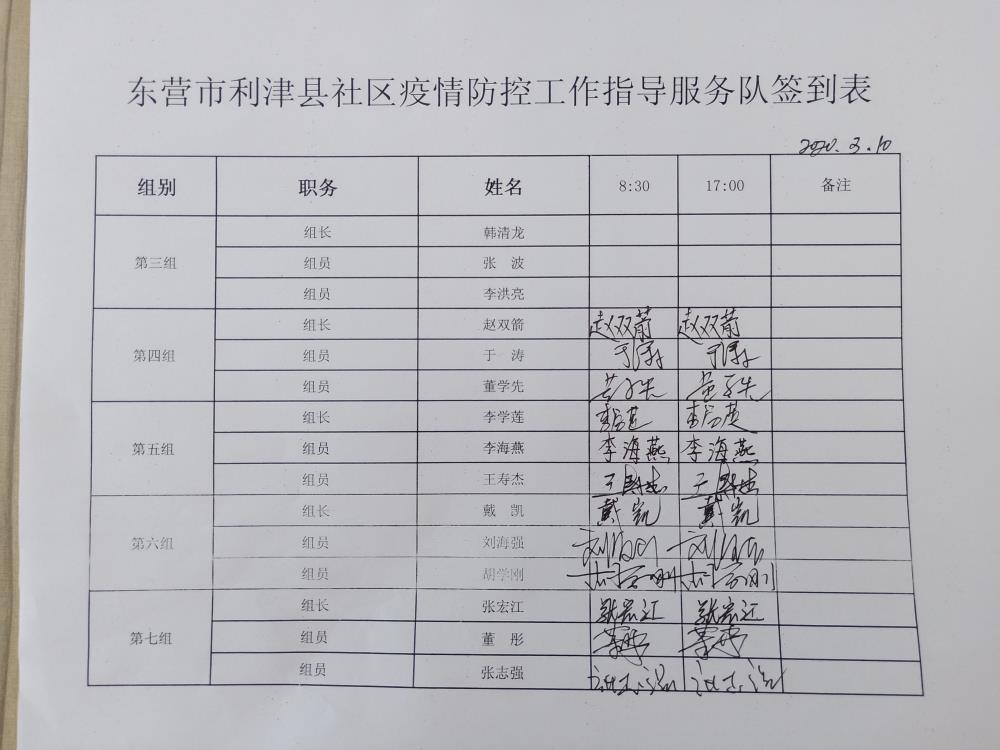 东营市利津县社区疫情防控工作指导服务队签到表
2020.3.10
组别 职务 姓名 8:30 17:00 备注
组长 韩清龙
第三组 组员 张 波
组员 李洪亮
组长 赵双箭 赵双箭 赵双箭
第四组 组员 于 涛 于涛 于涛
组员 董学先 董学先 董学先
组长 李学莲
第五组 组员 李海燕 李海燕 李海燕
组员 王寿杰
组长 戴 凯 戴凯 戴凯
第六组 组员 刘海强
组员 胡学刚
组长 张宏江 张宏江 张宏江
第七组 组员 董 彤 董彤 董彤
组员 张志强